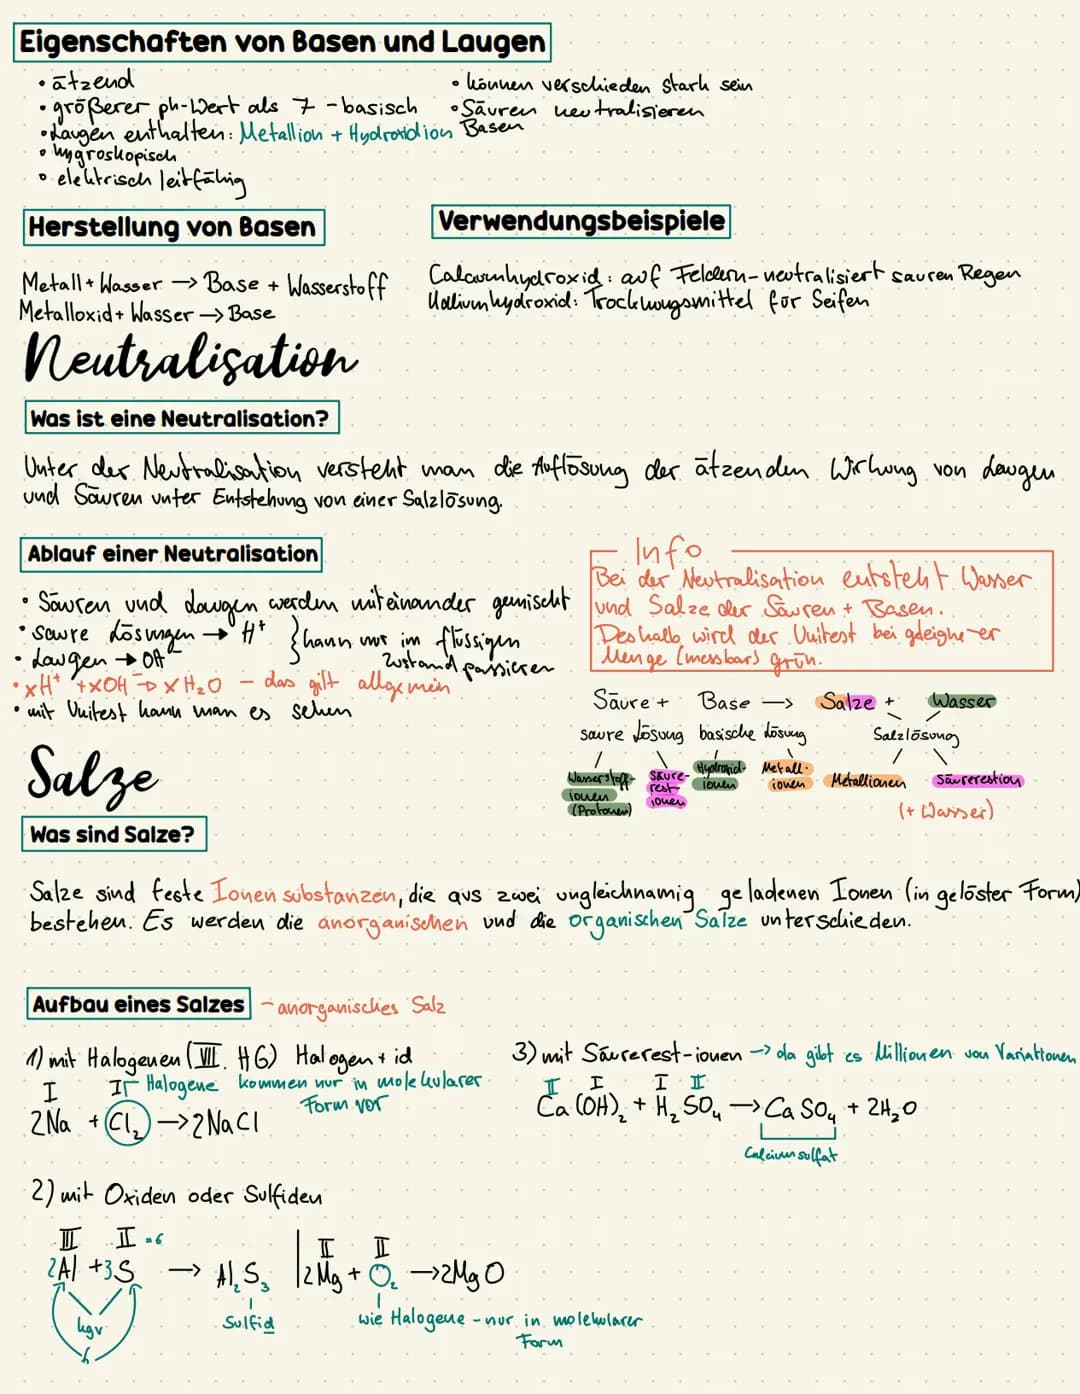 Eigenschaften von Basen und Laugen
• ätzend
• größerer ph-Wert als 7 - basisch
• Laugen enthalten: Metallion + Hydroxidion
• hygroskopisch
• elektrisch leitfähig
• können verschieden stark sein
• Säuren neutralisieren
Basen
Herstellung von Basen
Metall + Wasser → Base + Wasserstoff
Metalloxid + Wasser → Base
Verwendungsbeispiele
Calciumhydroxid: auf Feldern - neutralisiert sauren Regen
Kaliumhydroxid: Trocknungsmittel für Seifen
Neutralisation
Was ist eine Neutralisation?
Unter der Neutralisation versteht man die Auflösung der ätzenden Wirkung von Laugen
und Säuren unter Entstehung von einer Salzlösung.
Ablauf einer Neutralisation
• Säuren und Laugen werden miteinander gemischt
• saure Lösungen → H⁺ } kann nur im flüssigen
• Laugen → OH⁻ Zustand passieren
• xH⁺ + xOH⁻ → x H₂O - das gilt allgemein
• mit Unitest kann man es sehen
Info
Bei der Neutralisation entsteht Wasser
und Salze der Säuren + Basen.
Deshalb wird der Unitest bei gleicher
Menge (messbar) grün.
Säure + Base → Salze + Wasser
saure Lösung basische Lösung Salzlösung
Wasserstoff-ionen (Protonen) Säure-rest-ionen Hydroxid-ionen Metall-ionen Metallionen Säurerestion
(+ Wasser)
Salze
Was sind Salze?
Salze sind feste Ionensubstanzen, die aus zwei ungleichnamig geladenen Ionen (in gelöster Form)
bestehen. Es werden die anorganischen und die organischen Salze unterschieden.
Aufbau eines Salzes - anorganisches Salz
1) mit Halogenen (VII. HG) Halogen + id
I I Halogene kommen nur in molekularer
Form vor
2Na + Cl₂ → 2NaCl
2) mit Oxiden oder Sulfiden
III II = 6
2Al + 3S → Al₂S₃
kgv
6
Sulfid
II II
2Mg + O₂ → 2MgO
wie Halogene - nur in molekularer
Form
3) mit Säurerest-ionen → da gibt es Millionen von Variationen
II I I II
Ca(OH)₂ + H₂SO₄ → CaSO₄ + 2H₂O
Calciumsulfat